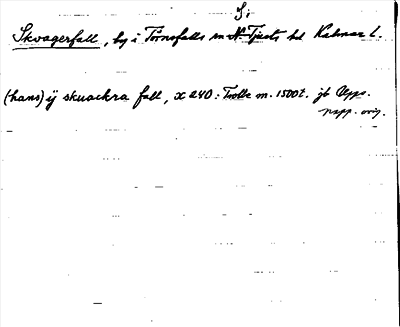 S:
Skvagerfall, by i Törnsfalls sn N. Tjusts hd Kalmar l.
(hans) ij skuackra fall, x 240: Trolle m. 1500t. jb Upps.
papp. orig.